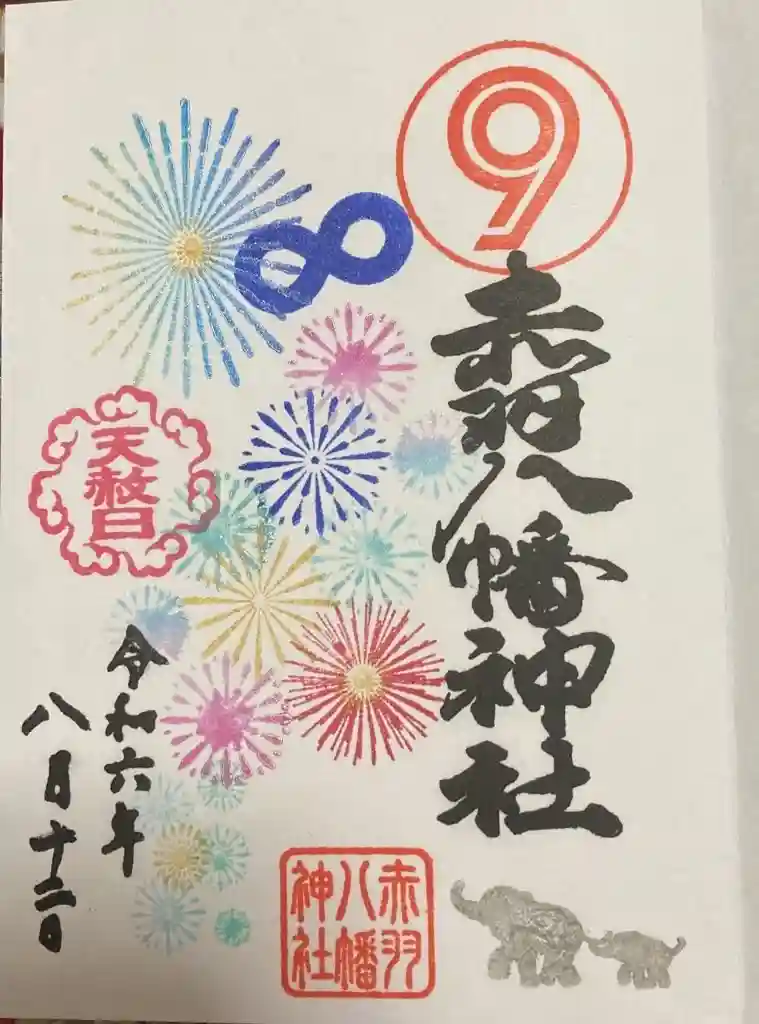 9
8
赤羽八幡神社
天赦日
令和六年
八月十二日
赤羽
八幡
神社